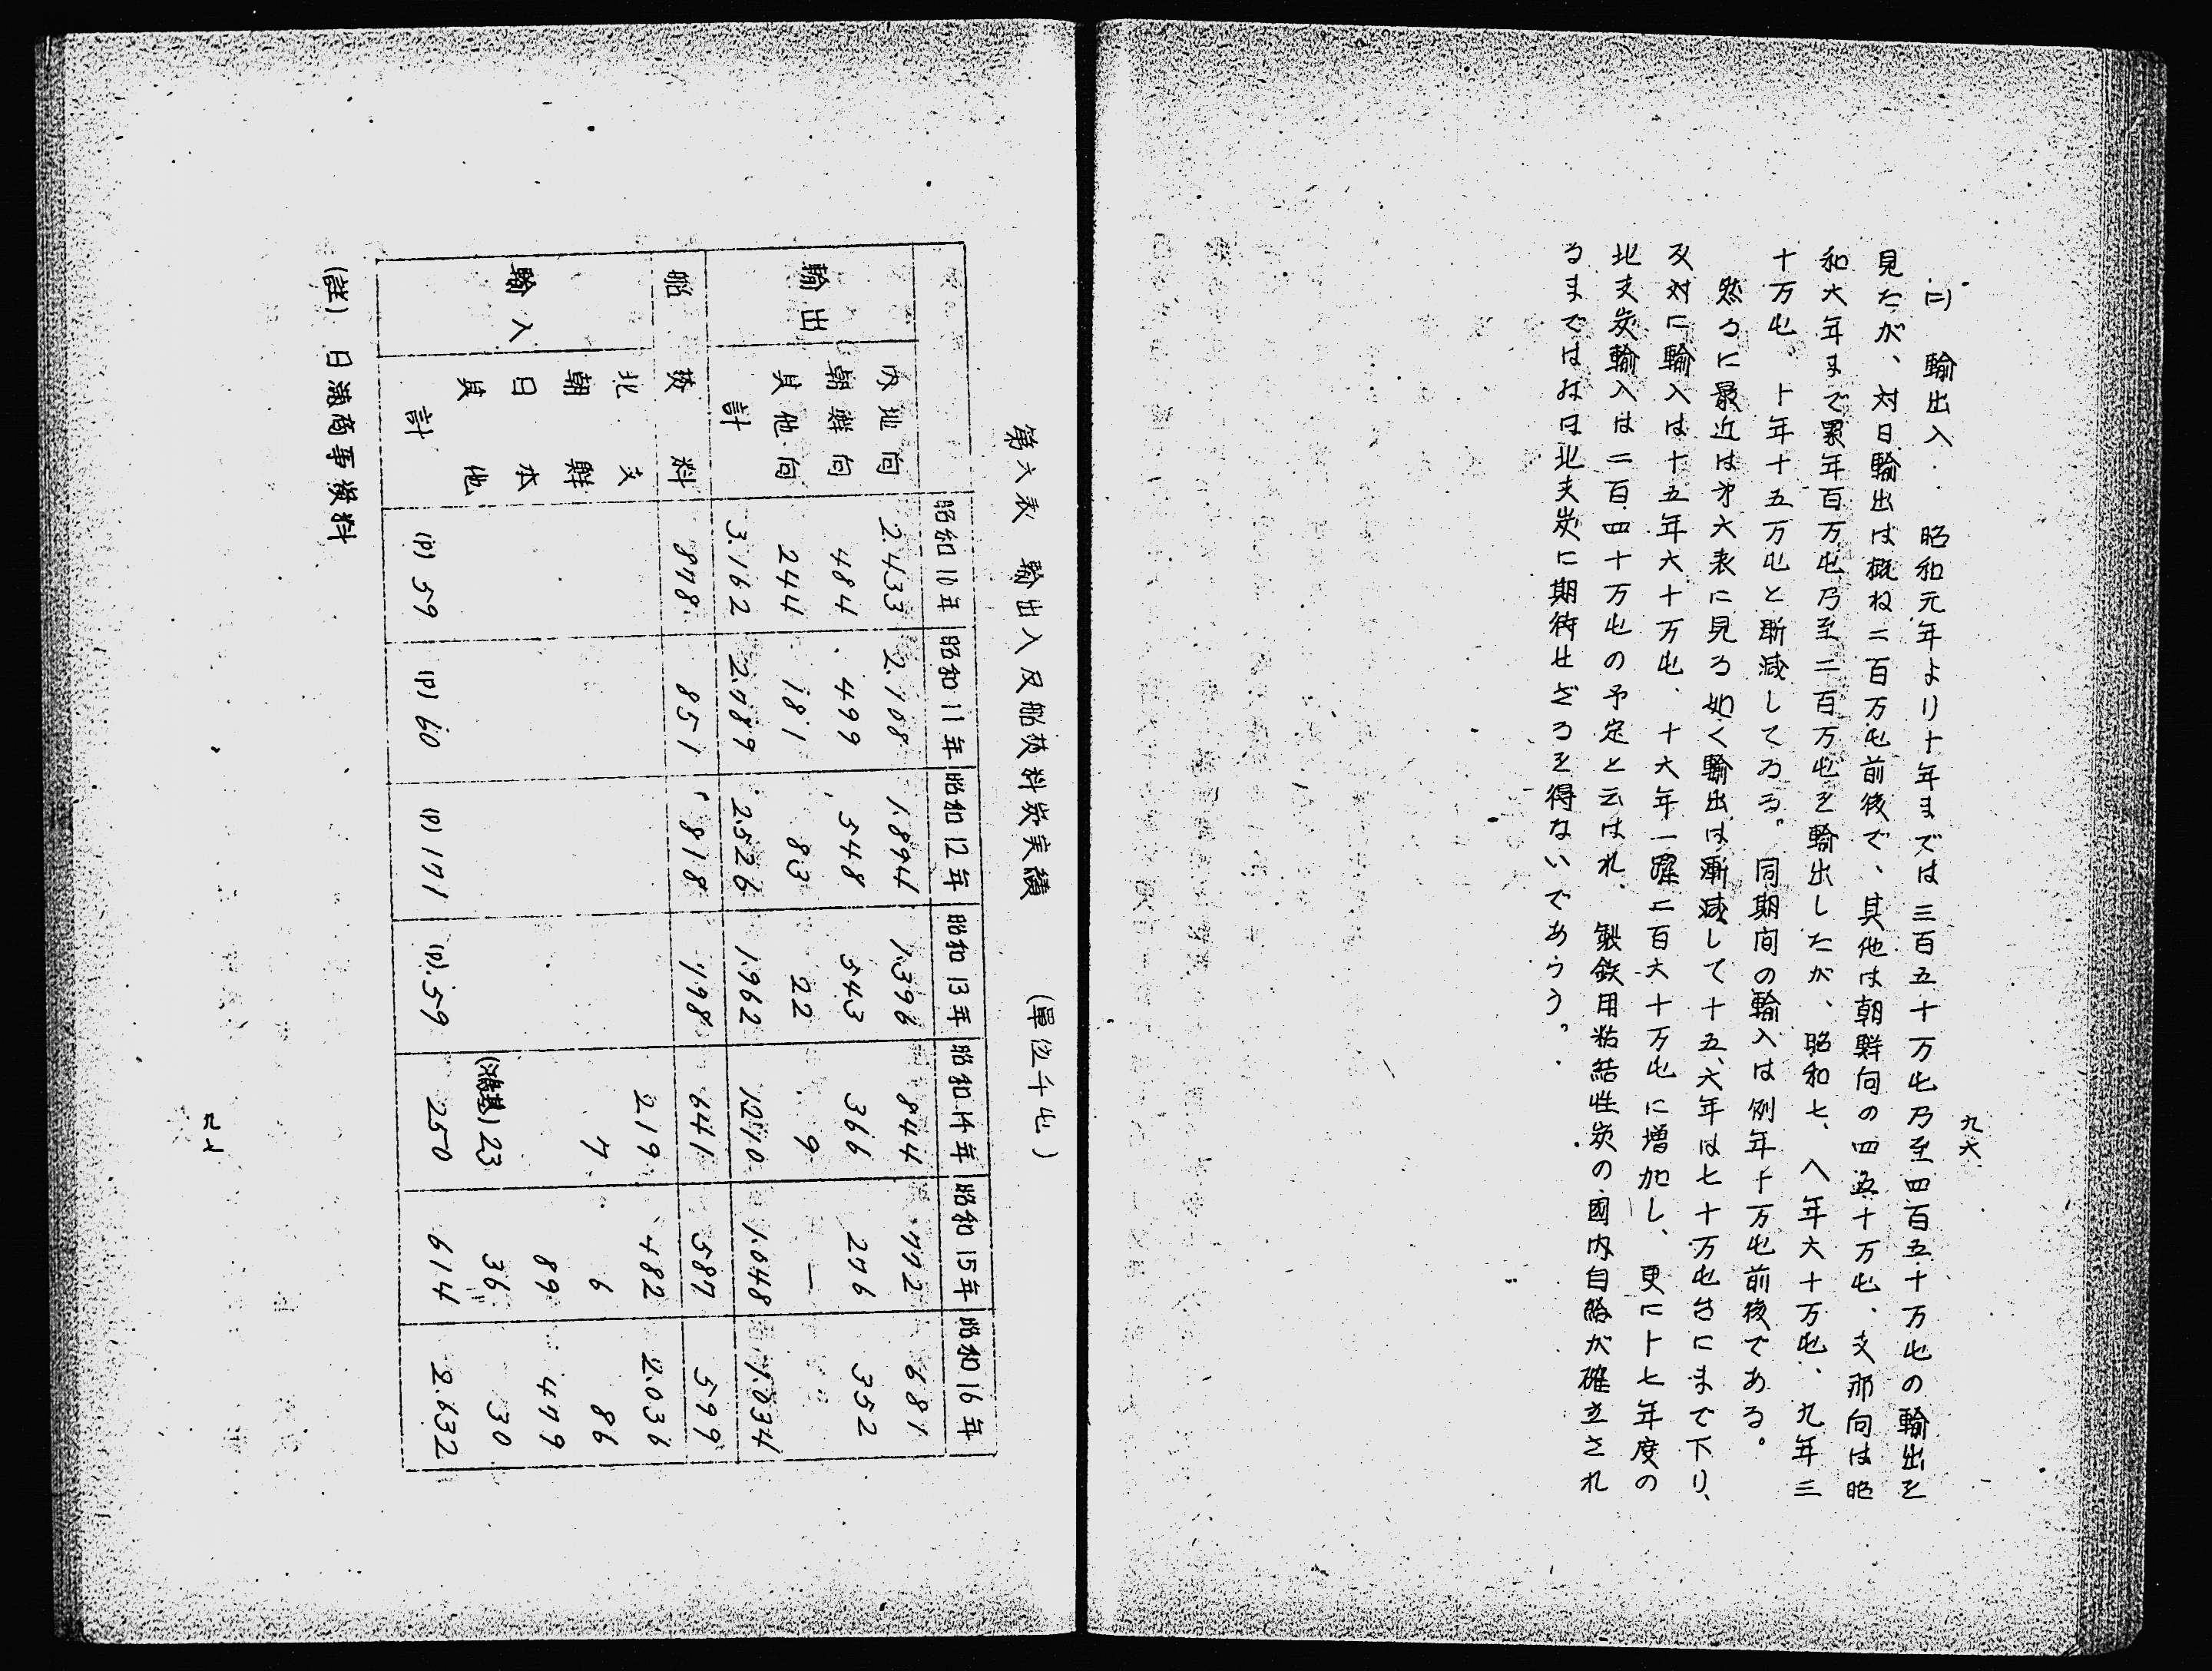 九六
(二) 輸出入．昭和元年より十年までは三百五十万屯乃至四百五十万屯の輸出を
見たが、対日輸出は概ね二百万屯前後で、其他は朝鮮向の四五十万屯、支那向は昭
和六年まで累年百万屯乃至二百万屯を輸出したが、昭和七、八年六十万屯、九年三
十万屯、十年十五万屯と漸減してゐる。同期间の輸入は例年十万屯前後である。
然るに最近は㐧六表に見る如く輸出は漸減して十五、六年は七十万屯台にまで下り、
反対に輸入は十五年六十万屯、十六年一躍二百六十万屯に増加し、更に十七年度の
北支炭輸入は二百四十万屯の予定と云はれ、製鉄用粘結性炭の國内自給が確立され
るまではなほ北支炭に期待せざるを得ないであらう。
第六表 輸出入及船焚料炭実績 (單位千屯)
昭和10年 昭和11年 昭和12年 昭和13年 昭和14年 昭和15年 昭和16年
輸出 内地向 2.433 2.108 1.894 1.396 844 772 681
朝鮮向 484 499 548 543 366 276 352
其他向 244 181 83 22 9 —
計 3.162 2.789 2.526 1.962 1.048 1.034
船焚料 878 851 818 798 641 587 599
輸入 北支 219 482 2.036
朝鮮 7 6 86
日本 89 479
其他 (鴻基) 23 36 30
計 (P) 59 (P) 60 (P) 171 (P) 59 250 614 2.632
(註) 日満商事資料
九七